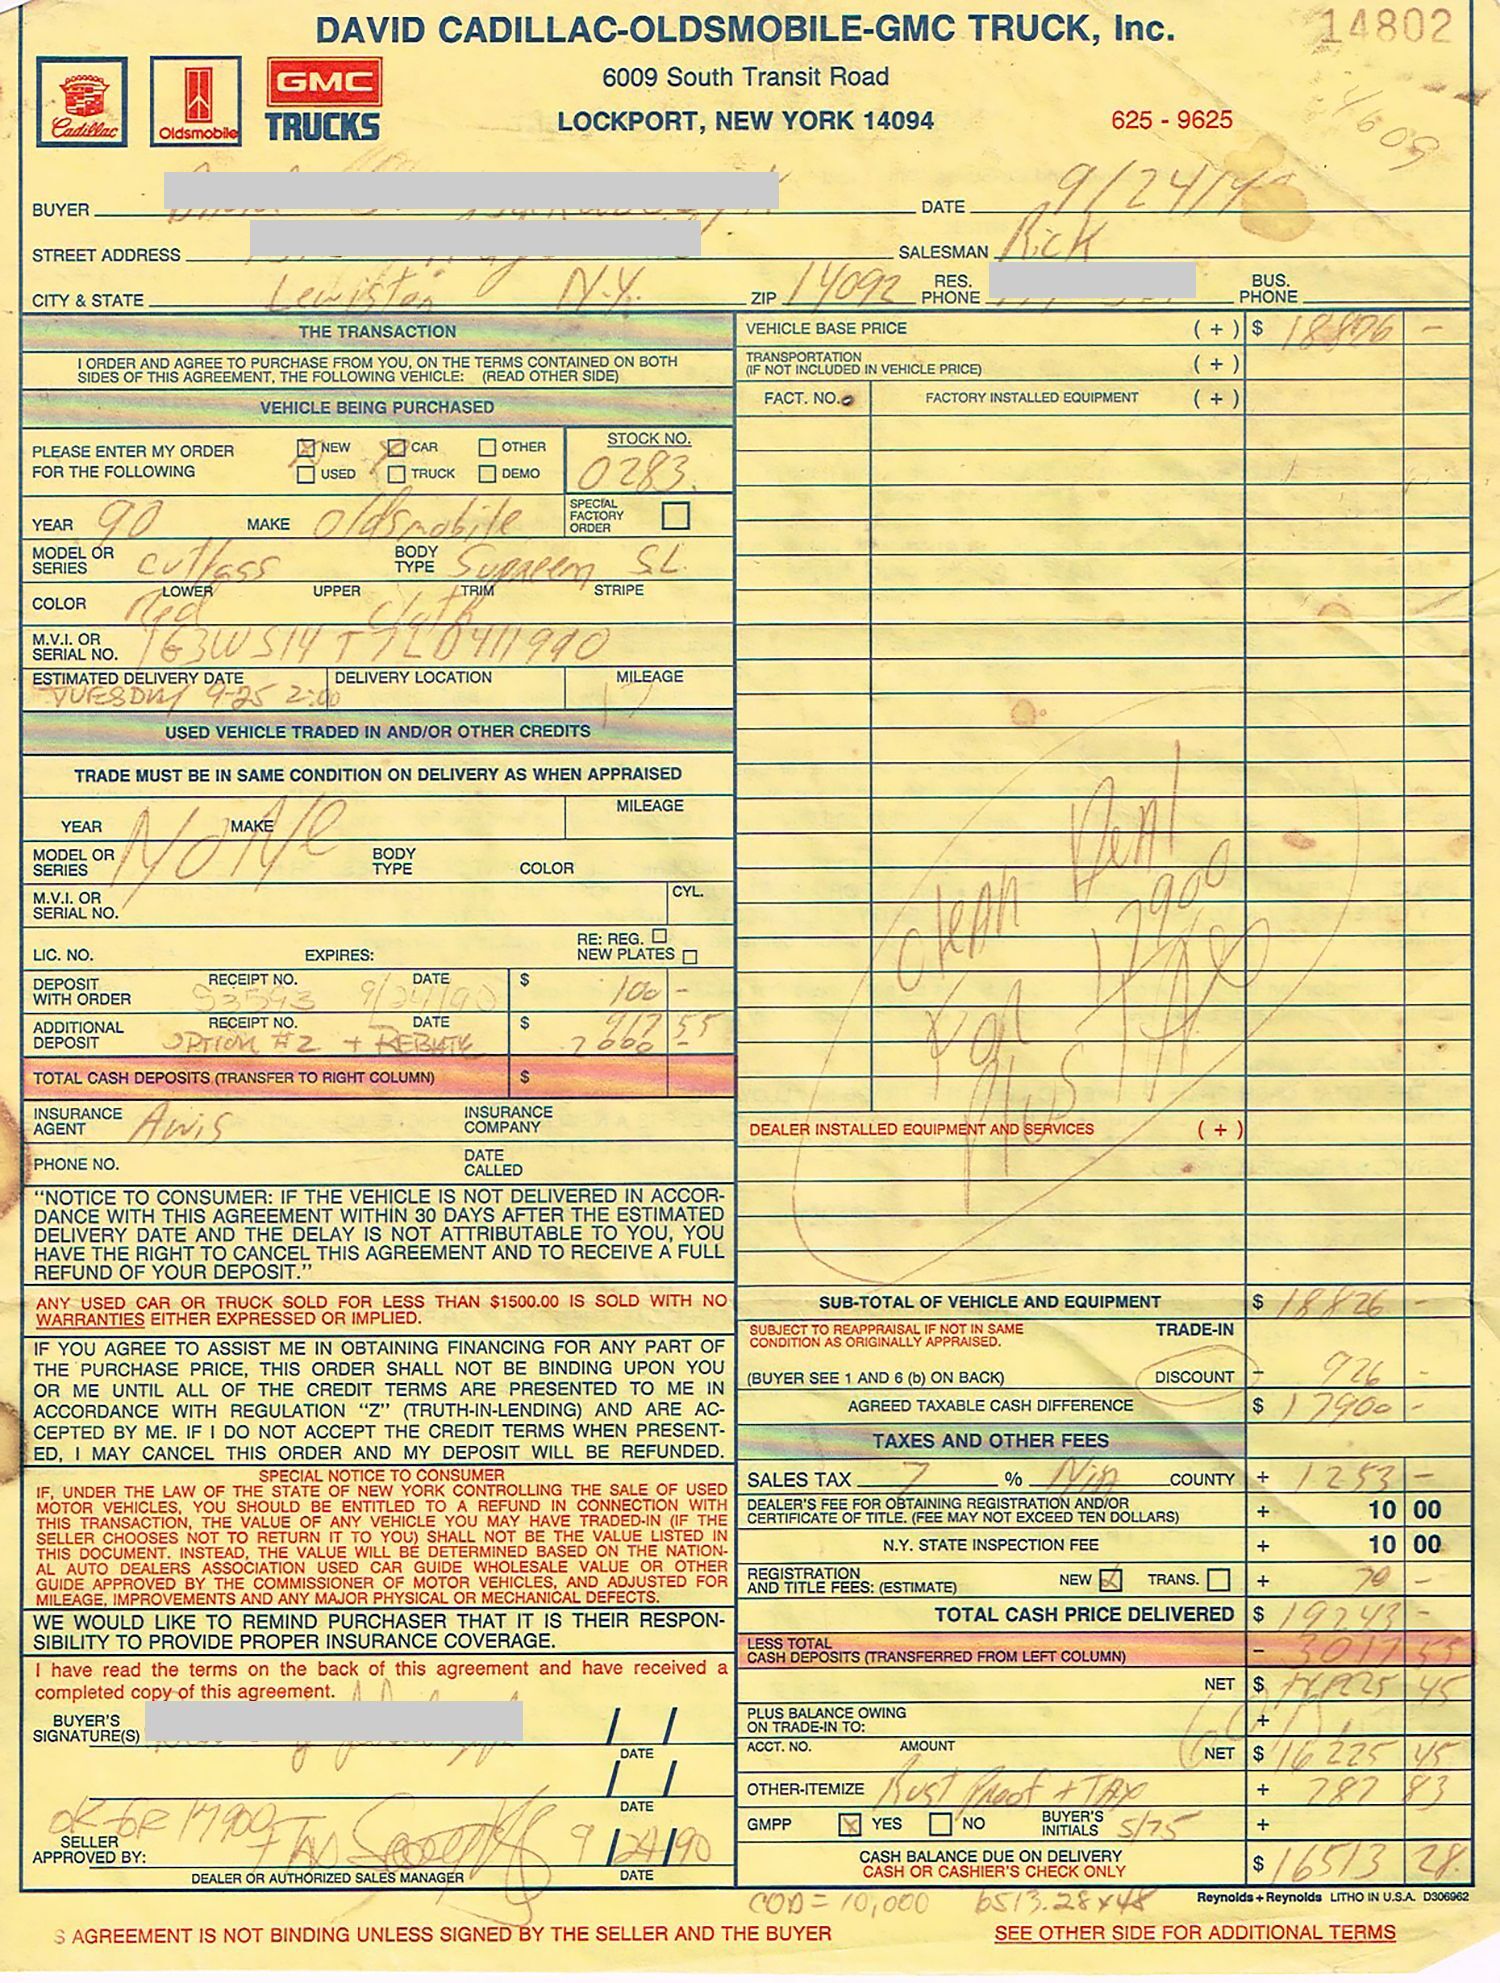 DAVID CADILLAC-OLDSMOBILE-GMC TRUCK, Inc.
14802
Cadillac
Oldsmobile
GMC
TRUCKS
6009 South Transit Road
LOCKPORT, NEW YORK 14094
625 - 9625
4609
BUYER
DATE 9/24/9
STREET ADDRESS
SALESMAN Rick
CITY & STATE Lewiston N.Y.
ZIP 14092
RES. PHONE
BUS. PHONE
THE TRANSACTION
I ORDER AND AGREE TO PURCHASE FROM YOU, ON THE TERMS CONTAINED ON BOTH
SIDES OF THIS AGREEMENT, THE FOLLOWING VEHICLE: (READ OTHER SIDE)
VEHICLE BEING PURCHASED
PLEASE ENTER MY ORDER
FOR THE FOLLOWING
NEW CAR OTHER
USED TRUCK DEMO
STOCK NO.
0283
YEAR 90 MAKE Oldsmobile
SPECIAL FACTORY ORDER
MODEL OR SERIES Cutlass BODY TYPE Supreem SL
COLOR LOWER Red UPPER TRIM cloth STRIPE
M.V.I. OR SERIAL NO. 1G3WS14T7LD411990
ESTIMATED DELIVERY DATE DELIVERY LOCATION MILEAGE
TUESDAY 9-25 2:00 17
USED VEHICLE TRADED IN AND/OR OTHER CREDITS
TRADE MUST BE IN SAME CONDITION ON DELIVERY AS WHEN APPRAISED
YEAR MAKE MILEAGE
NoNe
MODEL OR SERIES BODY TYPE COLOR
M.V.I. OR SERIAL NO. CYL.
LIC. NO. EXPIRES: RE: REG. NEW PLATES
DEPOSIT WITH ORDER RECEIPT NO. S3593 DATE 9/24/90 $ 100 -
ADDITIONAL DEPOSIT RECEIPT NO. DATE $ 917 55
OPTION #2 + REBATE 2000 -
TOTAL CASH DEPOSITS (TRANSFER TO RIGHT COLUMN) $
INSURANCE AGENT INSURANCE COMPANY
PHONE NO. DATE CALLED
"NOTICE TO CONSUMER: IF THE VEHICLE IS NOT DELIVERED IN ACCOR-
DANCE WITH THIS AGREEMENT WITHIN 30 DAYS AFTER THE ESTIMATED
DELIVERY DATE AND THE DELAY IS NOT ATTRIBUTABLE TO YOU, YOU
HAVE THE RIGHT TO CANCEL THIS AGREEMENT AND TO RECEIVE A FULL
REFUND OF YOUR DEPOSIT."
ANY USED CAR OR TRUCK SOLD FOR LESS THAN $1500.00 IS SOLD WITH NO
WARRANTIES EITHER EXPRESSED OR IMPLIED.
IF YOU AGREE TO ASSIST ME IN OBTAINING FINANCING FOR ANY PART OF
THE PURCHASE PRICE, THIS ORDER SHALL NOT BE BINDING UPON YOU
OR ME UNTIL ALL OF THE CREDIT TERMS ARE PRESENTED TO ME IN
ACCORDANCE WITH REGULATION "Z" (TRUTH-IN-LENDING) AND ARE AC-
CEPTED BY ME. IF I DO NOT ACCEPT THE CREDIT TERMS WHEN PRESENT-
ED, I MAY CANCEL THIS ORDER AND MY DEPOSIT WILL BE REFUNDED.
SPECIAL NOTICE TO CONSUMER
IF, UNDER THE LAW OF THE STATE OF NEW YORK CONTROLLING THE SALE OF USED
MOTOR VEHICLES, YOU SHOULD BE ENTITLED TO A REFUND IN CONNECTION WITH
THIS TRANSACTION, THE VALUE OF ANY VEHICLE YOU MAY HAVE TRADED-IN (IF THE
SELLER CHOOSES NOT TO RETURN IT TO YOU) SHALL NOT BE THE VALUE LISTED IN
THIS DOCUMENT. INSTEAD, THE VALUE WILL BE DETERMINED BASED ON THE NATION-
AL AUTO DEALERS ASSOCIATION USED CAR GUIDE WHOLESALE VALUE OR OTHER
GUIDE APPROVED BY THE COMMISSIONER OF MOTOR VEHICLES, AND ADJUSTED FOR
MILEAGE, IMPROVEMENTS AND ANY MAJOR PHYSICAL OR MECHANICAL DEFECTS.
WE WOULD LIKE TO REMIND PURCHASER THAT IT IS THEIR RESPON-
SIBILITY TO PROVIDE PROPER INSURANCE COVERAGE.
I have read the terms on the back of this agreement and have received a
completed copy of this agreement.
BUYER'S SIGNATURE(S) / / DATE
/ / DATE
OK FOR 17900
SELLER APPROVED BY: 9/24/90
DEALER OR AUTHORIZED SALES MANAGER DATE
VEHICLE BASE PRICE (+) $ 18826 -
TRANSPORTATION (IF NOT INCLUDED IN VEHICLE PRICE) (+)
FACT. NO. FACTORY INSTALLED EQUIPMENT (+)
clean Deal
17900
Plus
DEALER INSTALLED EQUIPMENT AND SERVICES (+)
SUB-TOTAL OF VEHICLE AND EQUIPMENT $ 18826 -
SUBJECT TO REAPPRAISAL IF NOT IN SAME CONDITION AS ORIGINALLY APPRAISED. TRADE-IN
(BUYER SEE 1 AND 6 (b) ON BACK) DISCOUNT - 926 -
AGREED TAXABLE CASH DIFFERENCE $ 17900 -
TAXES AND OTHER FEES
SALES TAX 7 % Nia COUNTY + 1253 -
DEALER'S FEE FOR OBTAINING REGISTRATION AND/OR
CERTIFICATE OF TITLE. (FEE MAY NOT EXCEED TEN DOLLARS) + 10 00
N.Y. STATE INSPECTION FEE + 10 00
REGISTRATION AND TITLE FEES: (ESTIMATE) NEW TRANS. + 70 -
TOTAL CASH PRICE DELIVERED $ 19243 -
LESS TOTAL CASH DEPOSITS (TRANSFERRED FROM LEFT COLUMN) - 3017 55
NET $ 16225 45
PLUS BALANCE OWING ON TRADE-IN TO: +
ACCT. NO. AMOUNT NET $ 16225 45
OTHER-ITEMIZE Rust Proof + TAX + 287 83
GMPP YES NO BUYER'S INITIALS 5/75 +
CASH BALANCE DUE ON DELIVERY
CASH OR CASHIER'S CHECK ONLY $ 16513 28
COD = 10,000 6513.28 x 48
Reynolds + Reynolds LITHO IN U.S.A. D306962
S AGREEMENT IS NOT BINDING UNLESS SIGNED BY THE SELLER AND THE BUYER
SEE OTHER SIDE FOR ADDITIONAL TERMS